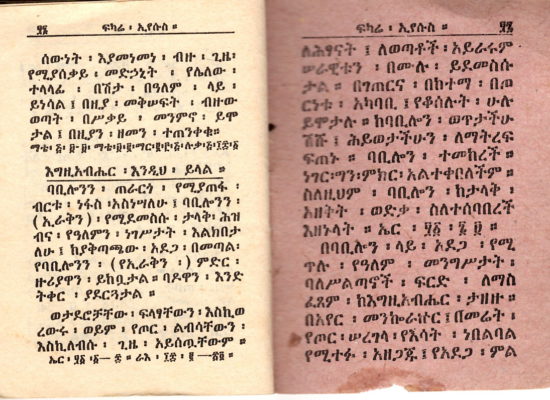 ፶፮ ፍካሬ ፡ ኢየሱስ ።
ሰውነት ፡ እያመነመነ ፡ ብዙ ፡ ጊዜ፡
የሚያሰቃይ ፡ መድኃኒት ፡ የሌለው ፡
ተላላፊ ፡ በሽታ ፡ በዓለም ፡ ላይ ፡
ይነሳል ፤ በዚያ ፡ መቅሠፍት ፡ ብዙው
ወጣት ፡ በሥቃይ ፡ መንምኖ ፡ ይሞ
ታል ፤ በዚያን ፡ ዘመን ፡ ተጠንቀቁ።
እግዚአብሔር ፡ እንዲህ ፡ ይላል ።
ባቢሎንን ፡ ጠራርጎ ፡ የሚያጠፋ ፡
ብርቱ ፡ ነፋስ ፡አስነሣለሁ ፤ ባቢሎንን ፡
(ኢራቅን) ፡ የሚደመስሱ ፡ ታላቅ፡ ሕዝ
ብና ፡ የዓለምን ፡ ነገሥታት ፡ እልክበታ
ለሁ ፤ ከያቅጣጫው ፡ አደጋ ፡ በመጣል፡
የባቢሎንን ፡ (የኢራቅን ፡) ምድር ፡
ዙሪያዋን ፡ ይከቧታል ። ባዶዋን ፡ እንድ
ትቀር ፡ ያደርጓታል ።
ወታደሮቻቸው ፡ ፍላፃቸውን ፡ እስኪወ
ረውሩ ፡ ወይም ፡ የጦር ፡ ልብሳቸውን ፡
እስኪለብሱ ፡ ጊዜ ፡ አይሰጧቸውም ።
ፍካሬ ፡ ኢየሱስ ።
ለሕፃናት ፤ ለወጣቶች ፡ አይራሩም
ሠራዊቴን ፡ በሙሉ ፡ ይደመስሱ
ታል ። በግጦርና ፡ በከተማ ፡ በጦ
ርነቱ ፡ አካባቢ ፡ የቆሰሉት ፡ ሁሉ
ይሞታሉ ። ከባቢሎን ፡ ወጥታችሁ
ሽሹ ፤ ሕይወታችሁን ፡ ለማትረፍ
ፍጠኑ ። ባቢሎን ፡ ተመከረች ።
ነገር፡ግን፡ምክር፡ አልተቀበለችም።
ስለዚህም ፡ ባቢሎን ፡ ከታላቅ ፡
አዘቅት ፡ ወድቃ ፡ ስለተሰባበረች
እዘኑላት ። ኤር ፡
በባቢሎን ፡ ላይ ፡ አደጋ ፡ የሚ
ጥሉ ፡ የዓለም ፡ መንግሥታት ፡
ባለሥልጣኖች ፡ ፍርድ ፡ ለማስ
ፈጸም ፡ ከእግዚአብሔር ፡ ታዘዙ ።
በአየር ፡ መንኰራኵር፤ በመሬት ፡
የጦር ፡ ሠረገላ ፡ የእሳት ፡ ነበልባል
የሚተፉ ፡ አዘጋጁ ፤ የአደጋ ፡ ምል